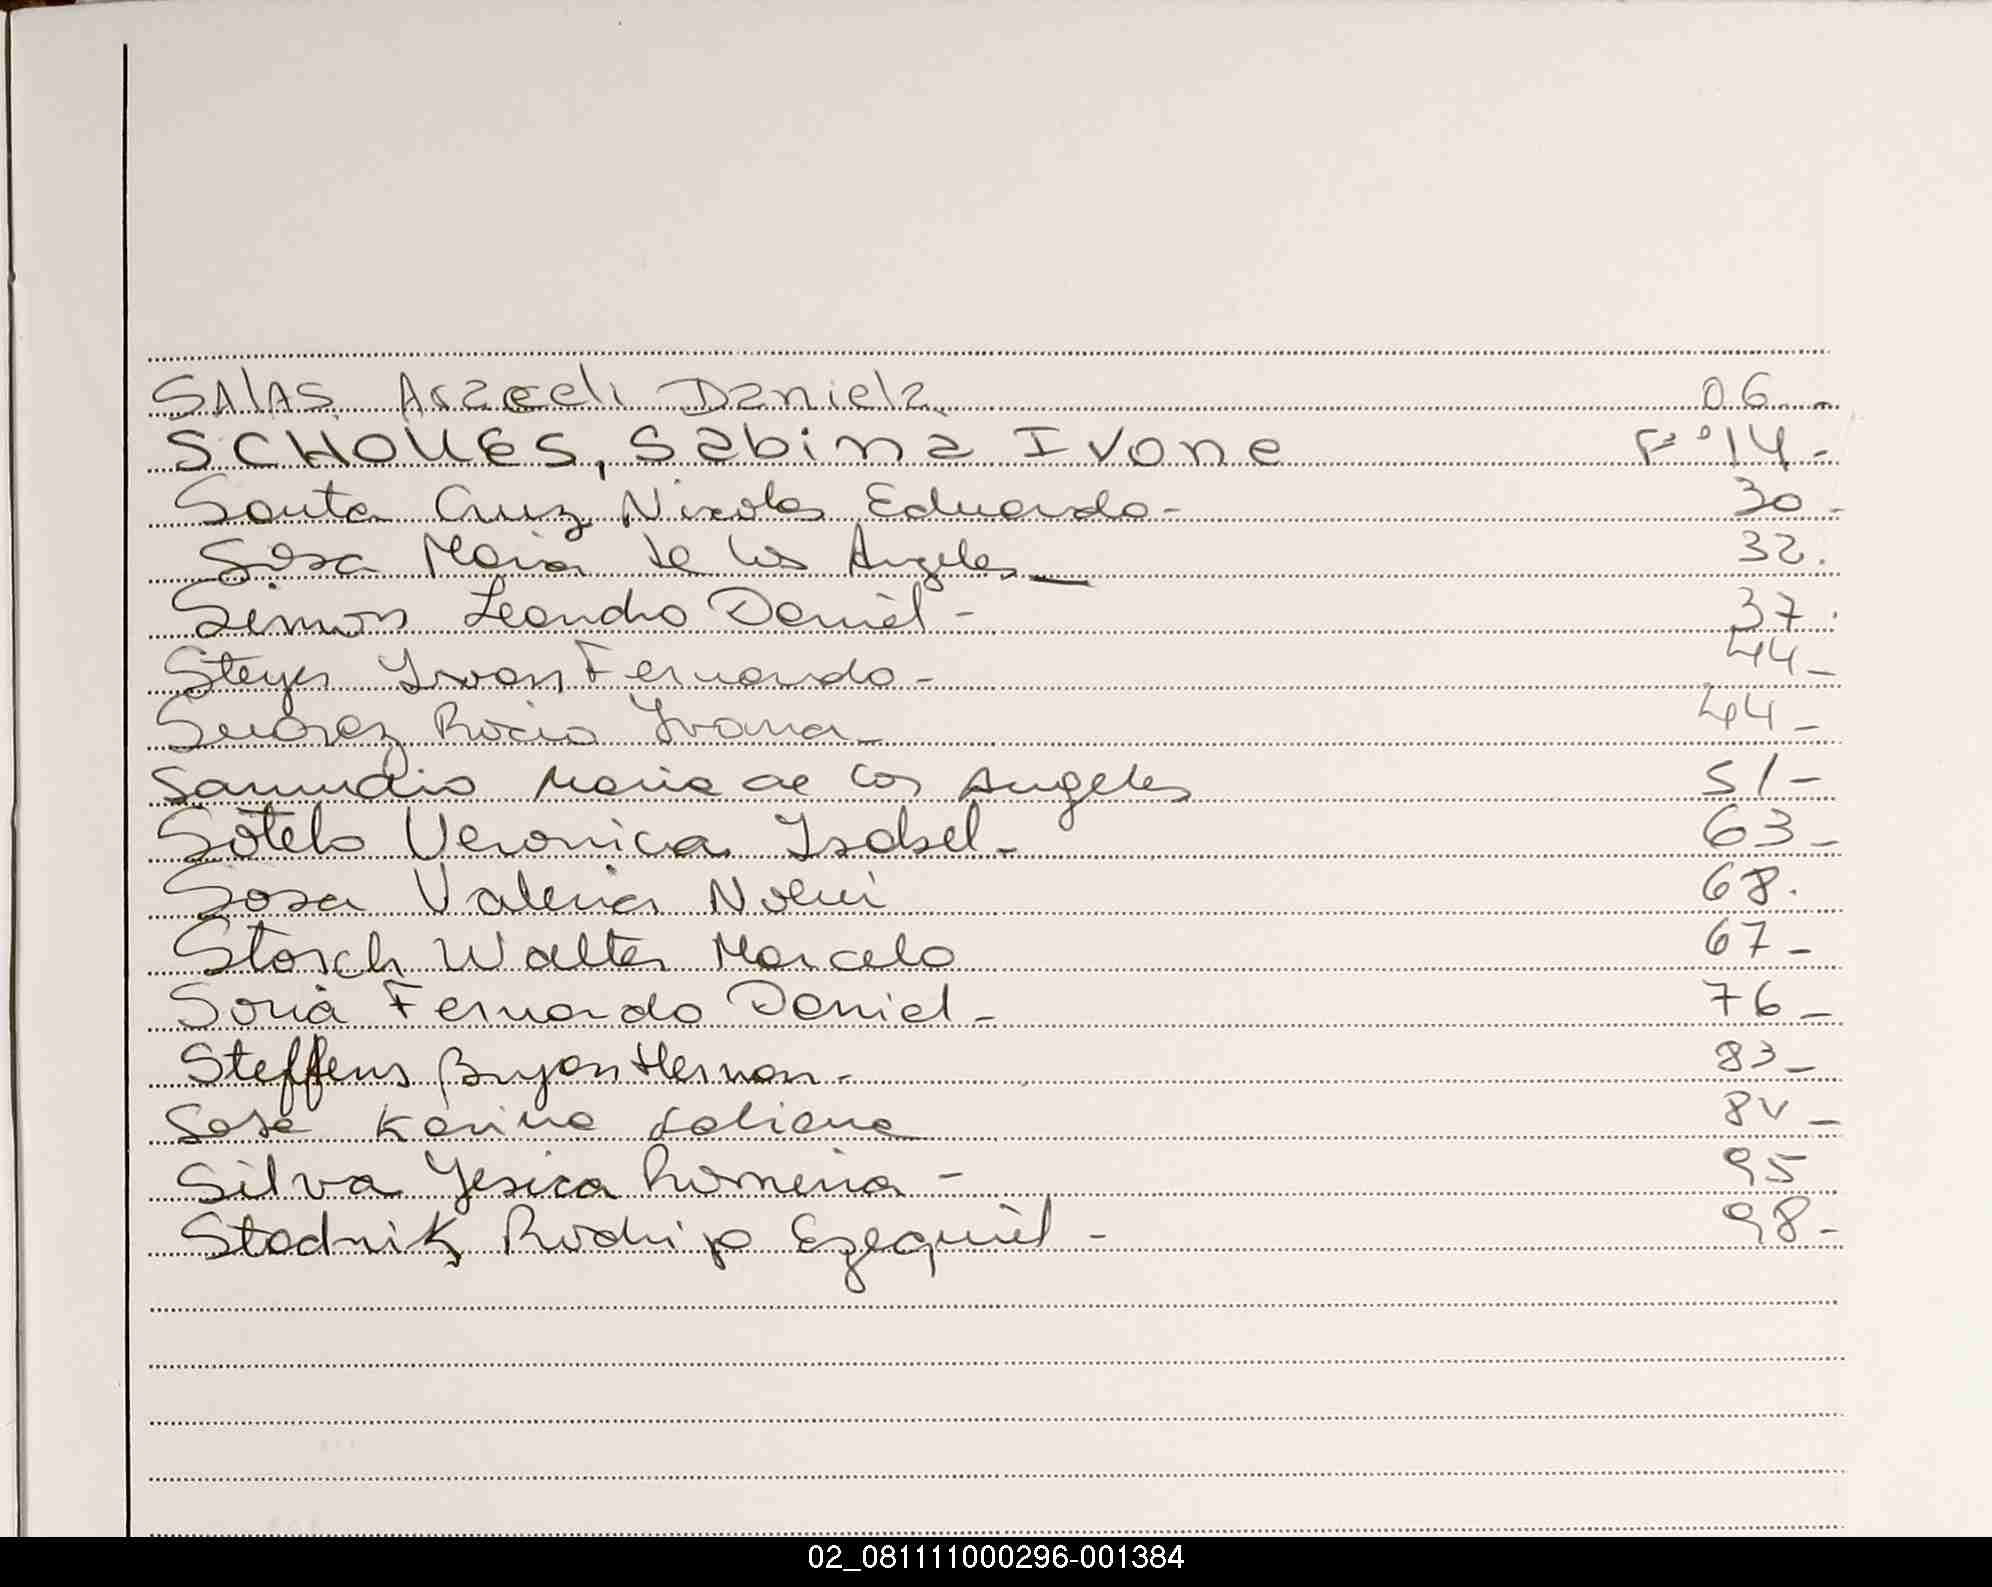 SAlAS Araceli Daniela 06 -
SCHOUES, Sabina Ivone Fº 14 -
Santa Cruz Nicolas Eduardo - 30 -
Sosa Maria de los Angeles — 32.
Simon Leandro Daniel - 37.
Steyer Ivan Fernando - 44 -
Suarez Rocio Ivana - 44 -
Samudio Maria de los Angeles 51 -
Sotelo Veronica Isabel - 63 -
Sosa Valeria Noemi 68.
Storch Walter Marcelo 67 -
Soria Fernando Daniel - 76 -
Steffens Bryan Hernan - 83 -
Sosa Karina 84 -
Silva Yesica Romina - 95
Stadnik Rodrigo Ezequiel - 98 -
02_081111000296-001384